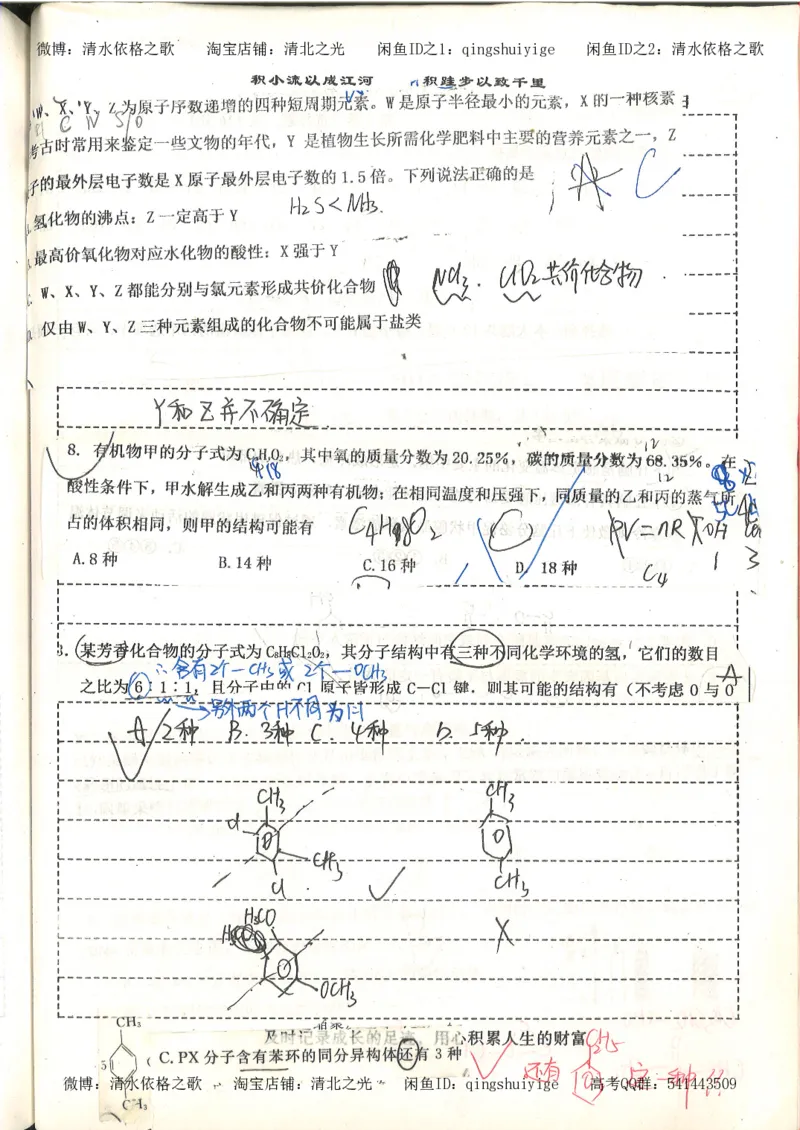 微博：清水依格之歌 淘宝店铺：清北之光 闲鱼ID之1：qingshuiyige 闲鱼ID之2：清水依格之歌
积小流以成江河 积跬步以致千里
W、X、Y、Z为原子序数递增的四种短周期元素。W是原子半径最小的元素，X的一种核素
H C N S/O
考古时常用来鉴定一些文物的年代，Y 是植物生长所需化学肥料中主要的营养元素之一，Z
子的最外层电子数是X原子最外层电子数的1.5倍。下列说法正确的是
A C
氢化物的沸点：Z一定高于Y
H2S<NH3.
最高价氧化物对应水化物的酸性：X强于Y
W、X、Y、Z都能分别与氯元素形成共价化合物
NCl3. ClO2共价化合物
仅由W、Y、Z三种元素组成的化合物不可能属于盐类
Y和Z并不确定
8. 有机物甲的分子式为CxHyO2，其中氧的质量分数为20.25%，碳的质量分数为68.35%。在
酸性条件下，甲水解生成乙和丙两种有机物；在相同温度和压强下，同质量的乙和丙的蒸气所
占的体积相同，则甲的结构可能有
C PV=nRT
A.8种 B.14种 C.16种 D. 18种
C4
3. 某芳香化合物的分子式为C8H8Cl2O2，其分子结构中有三种不同化学环境的氢，它们的数目
∴含有2个—CH3或2个—OCH3
之比为6∶1∶1，且分子中的Cl原子皆形成C—Cl键，则其可能的结构有（不考虑O与O
A
另外两个H不同为H
A. 2种 B. 3种 C. 4种 D. 5种.
CH3 CH3
Cl
CH3
Cl CH3
H3CO
OCH3
及时记录成长的足迹，用心积累人生的财富
CH3
5 （ C.PX分子含有苯环的同分异构体还有3种
C2H5
还有 这一种!!
CH3
微博：清水依格之歌 淘宝店铺：清北之光 闲鱼ID：qingshuiyige 高考QQ群：541443509